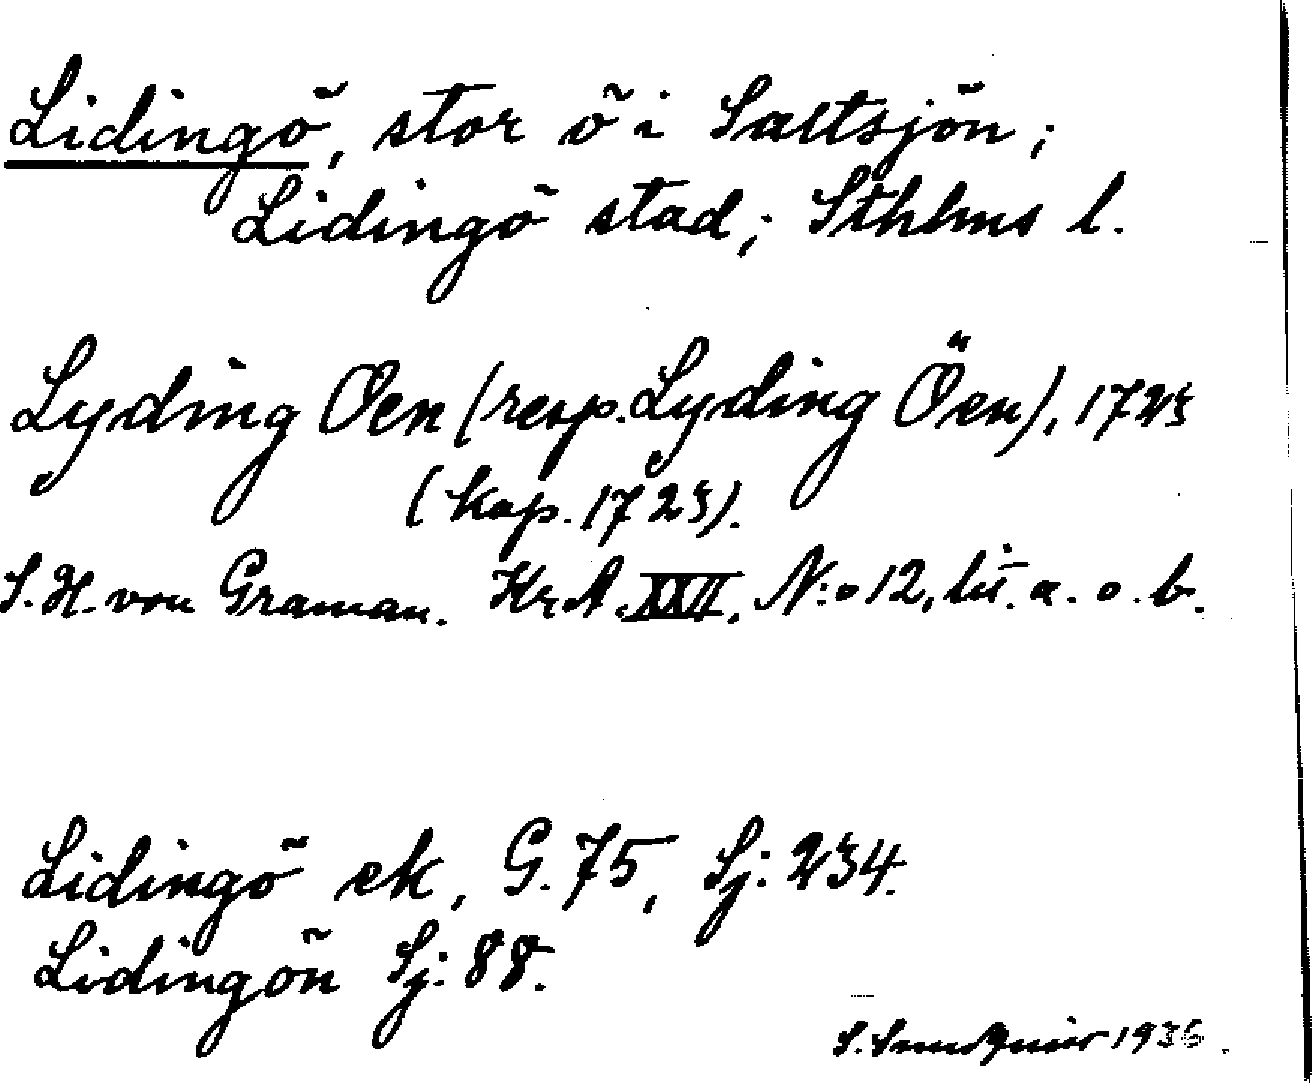 Lidingö, stor ö i Saltsjön;
Lidingö stad; Sthlms l.
Lyding Oen (resp. Lyding Öen), 1723
(kop. 1723).
S. H. von Graman. Kr. A. XXII, N:o 12, lit. a. o. b.
Lidingö ek, G. 75, Sj: 234.
Lidingön Sj: 88.
1936.